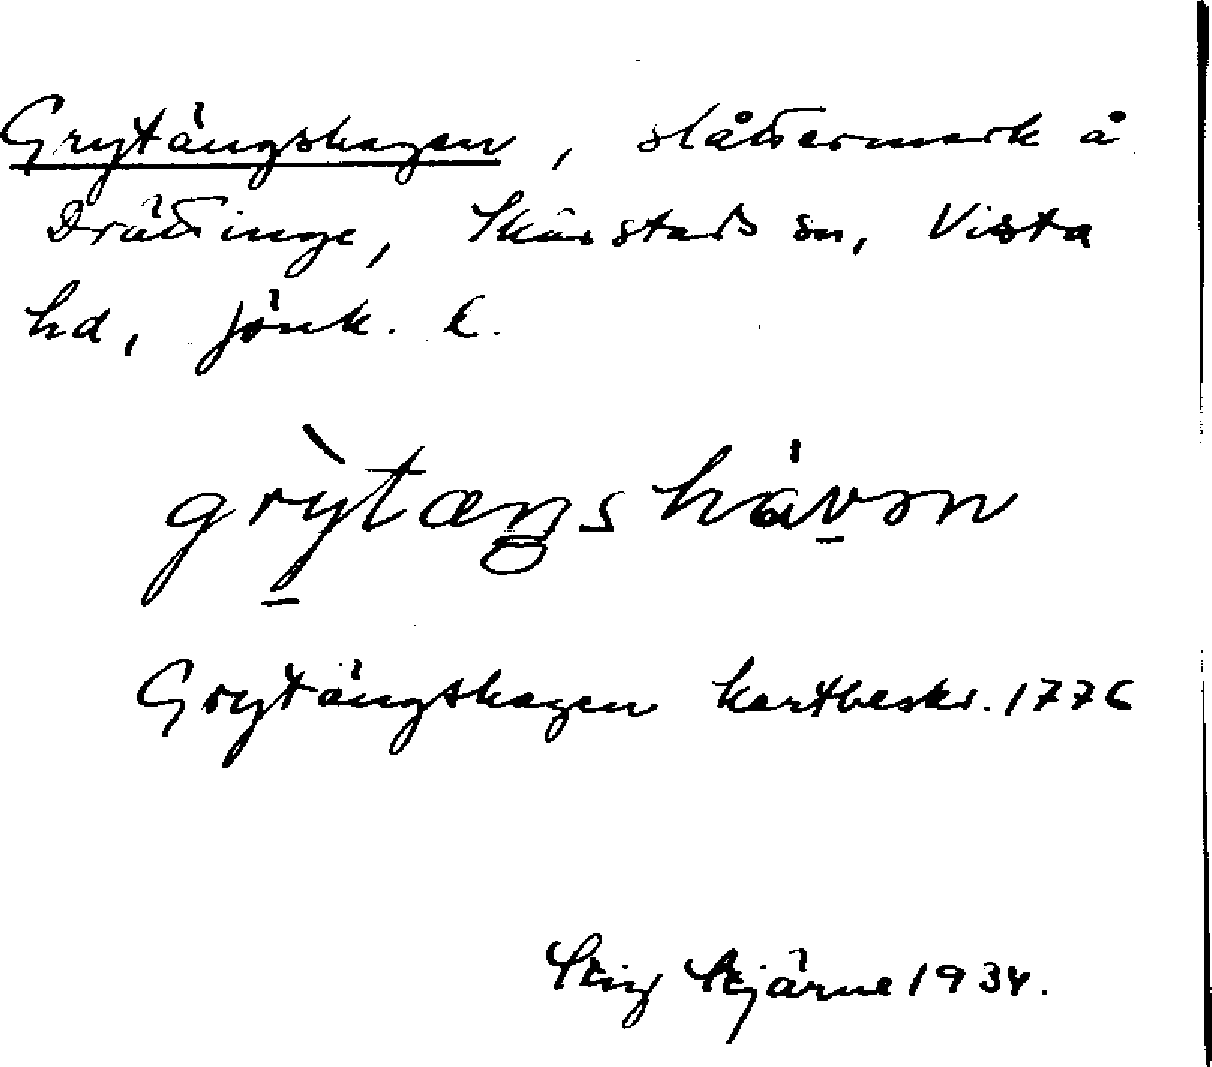 Grytängshagen, slåttermark å
Drättinge, Skärstads sn, Vista
hd, Jönk. l.
grỳtæŋshávən
Grytängshagen kartbeskr. 1776
Stig Stjärne 1934.